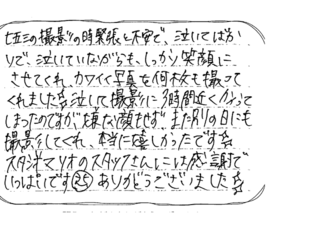 七五三の撮影の時緊張と不安で、泣いてばか
りで、泣いていながらも、しっかり笑顔に
させてくれ、カワイイ写真を何枚も撮って
くれました☆泣して撮影に3時間近くかかって
しまったのですが、嫌な顔せず、また別の日にも
撮影してくれ、本当に嬉しかったです☆
スタジオマリオのスタッフさんには感謝で
いっぱいです ありがとうございました☆